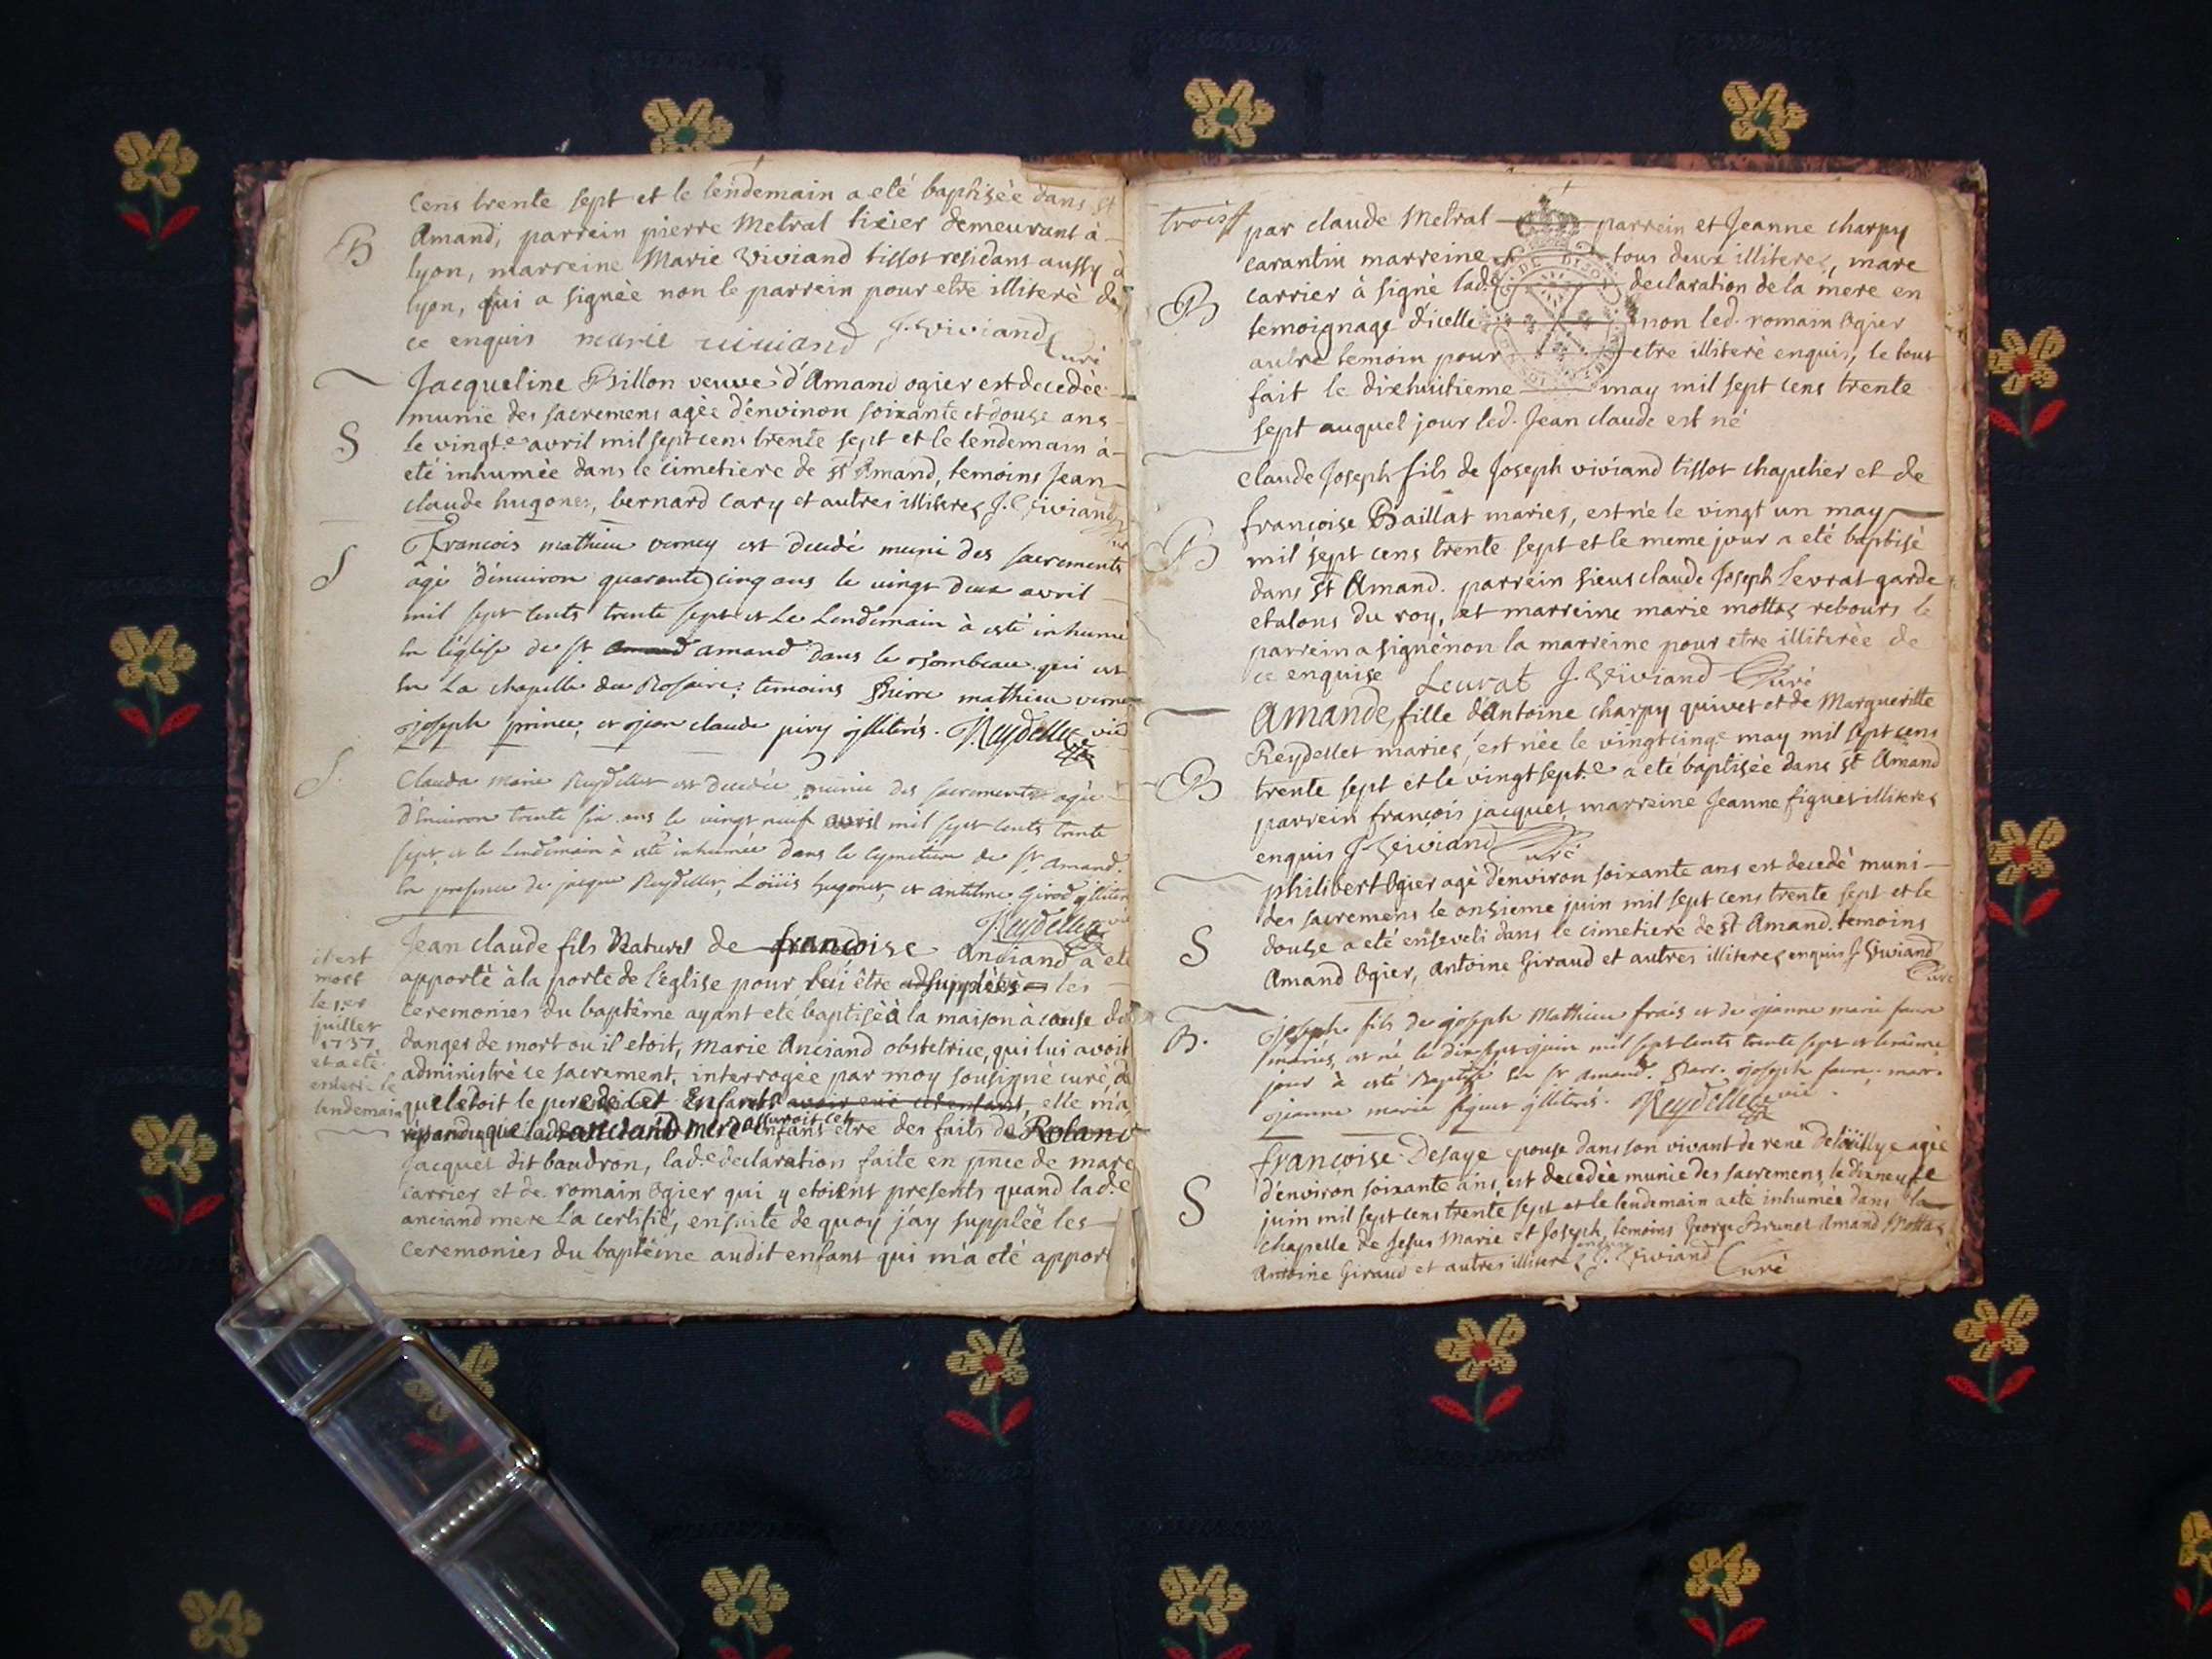 cens trente sept et le lendemain a eté baptisée dans st
B
Amand, parrein pierre Metral tixier demeurant à
lyon, marreine Marie Viviand tissot residans aussy à
lyon, qui a signée non le parrein pour etre illiterè de
ce enquis marie viuiand J. Viviand Curé
Jacqueline Billon veuve d'Amand ogier est decedèe
munie des sacremens agèe d'environ soixante et douze ans
S
le vingt.e avril mil sept cens trente sept et le lendemain à
eté inhumèe dans le cimetiere de st Amand, temoins Jean
claude hugonet, bernard Cary et autres illiteres J. Viviand
François mathieu verney est decedé muni des sacrements
S
agé d'enuiron quarante cinq ans le vingt deux avril
mil sept cents trente sept et Le Lendemain à esté inhumé
en l'église de st amand amand dans le tombeau qui est
en La chapelle du Rosaire; temoins Pierre mathieu verney
joseph prince, et jean claude jliterés. Reydellet vic
S.
Clauda marie Reydellet est decedée munie des sacrements agée
d'enuiron trente six ans le vingt neuf avril mil sept cents trente
sept, et le Lendemain à esté inhumée dans le cymetiere de st. amand.
en presence de jacque Reydellet, Loüis hugonet, et antelme Girod jlliter
Reydellet vic
Jean claude fils Naturel de françoise Anciand a eté
apportè à la porte de l'église pour lui être supplèès les
ceremonies du baptême ayant eté baptisè à la maison à cause du
danger de mort ou il etoit, Marie Anciand obstetrice, qui lui avoit
administré ce sacrement, interrogèe par moy sousignè curè, de
quel etoit le pere de cet Enfant avoir eue cet enfant, elle m'a
repondu que lad. anciand mere assuroit cet enfans être des faits de Roland
Jacquet dit baudron, lad.e declaration faite en pnce de marc
carrier et de romain Ogier qui y etoient presents quand lad.e
anciand mere l'a certifié, ensuite de quoy j'ay supplèë les
ceremonies du baptême audit enfant qui m'a eté apporté
il est
mort
le 1.er
juillet
1737
et a eté
enterré le
lendemain
trois
par claude Metral parrein et Jeanne charpy
carantin marreine tous deux illiteres, marc
B
carrier à signè lad.e declaration de la mere en
temoignage d'icelle non led. romain Ogier
autre temoin pour etre illiterè enquis, le tout
fait le dixhuitieme may mil sept cens trente
sept auquel jour led. Jean claude est né
claude Joseph fils de Joseph viviand tissot chapelier et de
françoise Baillat maries, est ne le vingt un may
B
mil sept cens trente sept et le meme jour a eté baptisé
dans st Amand. parrein sieur claude Joseph Levrat garde
etalons du roy, et marreine marie mottas rebours le
parrein a signè non la marreine pour etre illiterèe de
ce enquise Levrat J. Viviand Curé
Amande, fille d'Antoine charpy quivet et de Margueritte
Reydellet maries, est nèe le vingtcinq.e may mil sept cens
B
trente sept et le vingtsept.e a eté baptisèe dans st Amand
parrein françois jacquet, marreine Jeanne figuet illiteres
enquis J. Viviand Curé
philibert Ogier agè d'environ soixante ans est decedé muni
des sacremens le onzieme juin mil sept cens trente sept et le
S
douze a eté enseveli dans le cimetiere de st Amand. temoins
Amand Ogier, Antoine Giraud et autres illiteres enquis J. Viviand
Curé
B.
joseph fils de joseph Mathieu frais et de jeanne marie faure
mariés, est né le dix sept juin mil sept cents trente sept et le même
jour à esté Baptisé en st amand. Parr. joseph faure. marr.
jeanne marie figuet jlliterés. Reydellet vic.
françoise Desaye epouse dans son vivant de renè agèe
d'environ soixante ans, est decedèe munie des sacremens, le dixneufe
S
juin mil sept cens trente sept et le lendemain a eté inhumée dans la
chapelle de Jesus Marie et Joseph, temoins George Brunet Amand Mottas
Antoine Giraud et autres illiteres enquis J. Viviand Curé